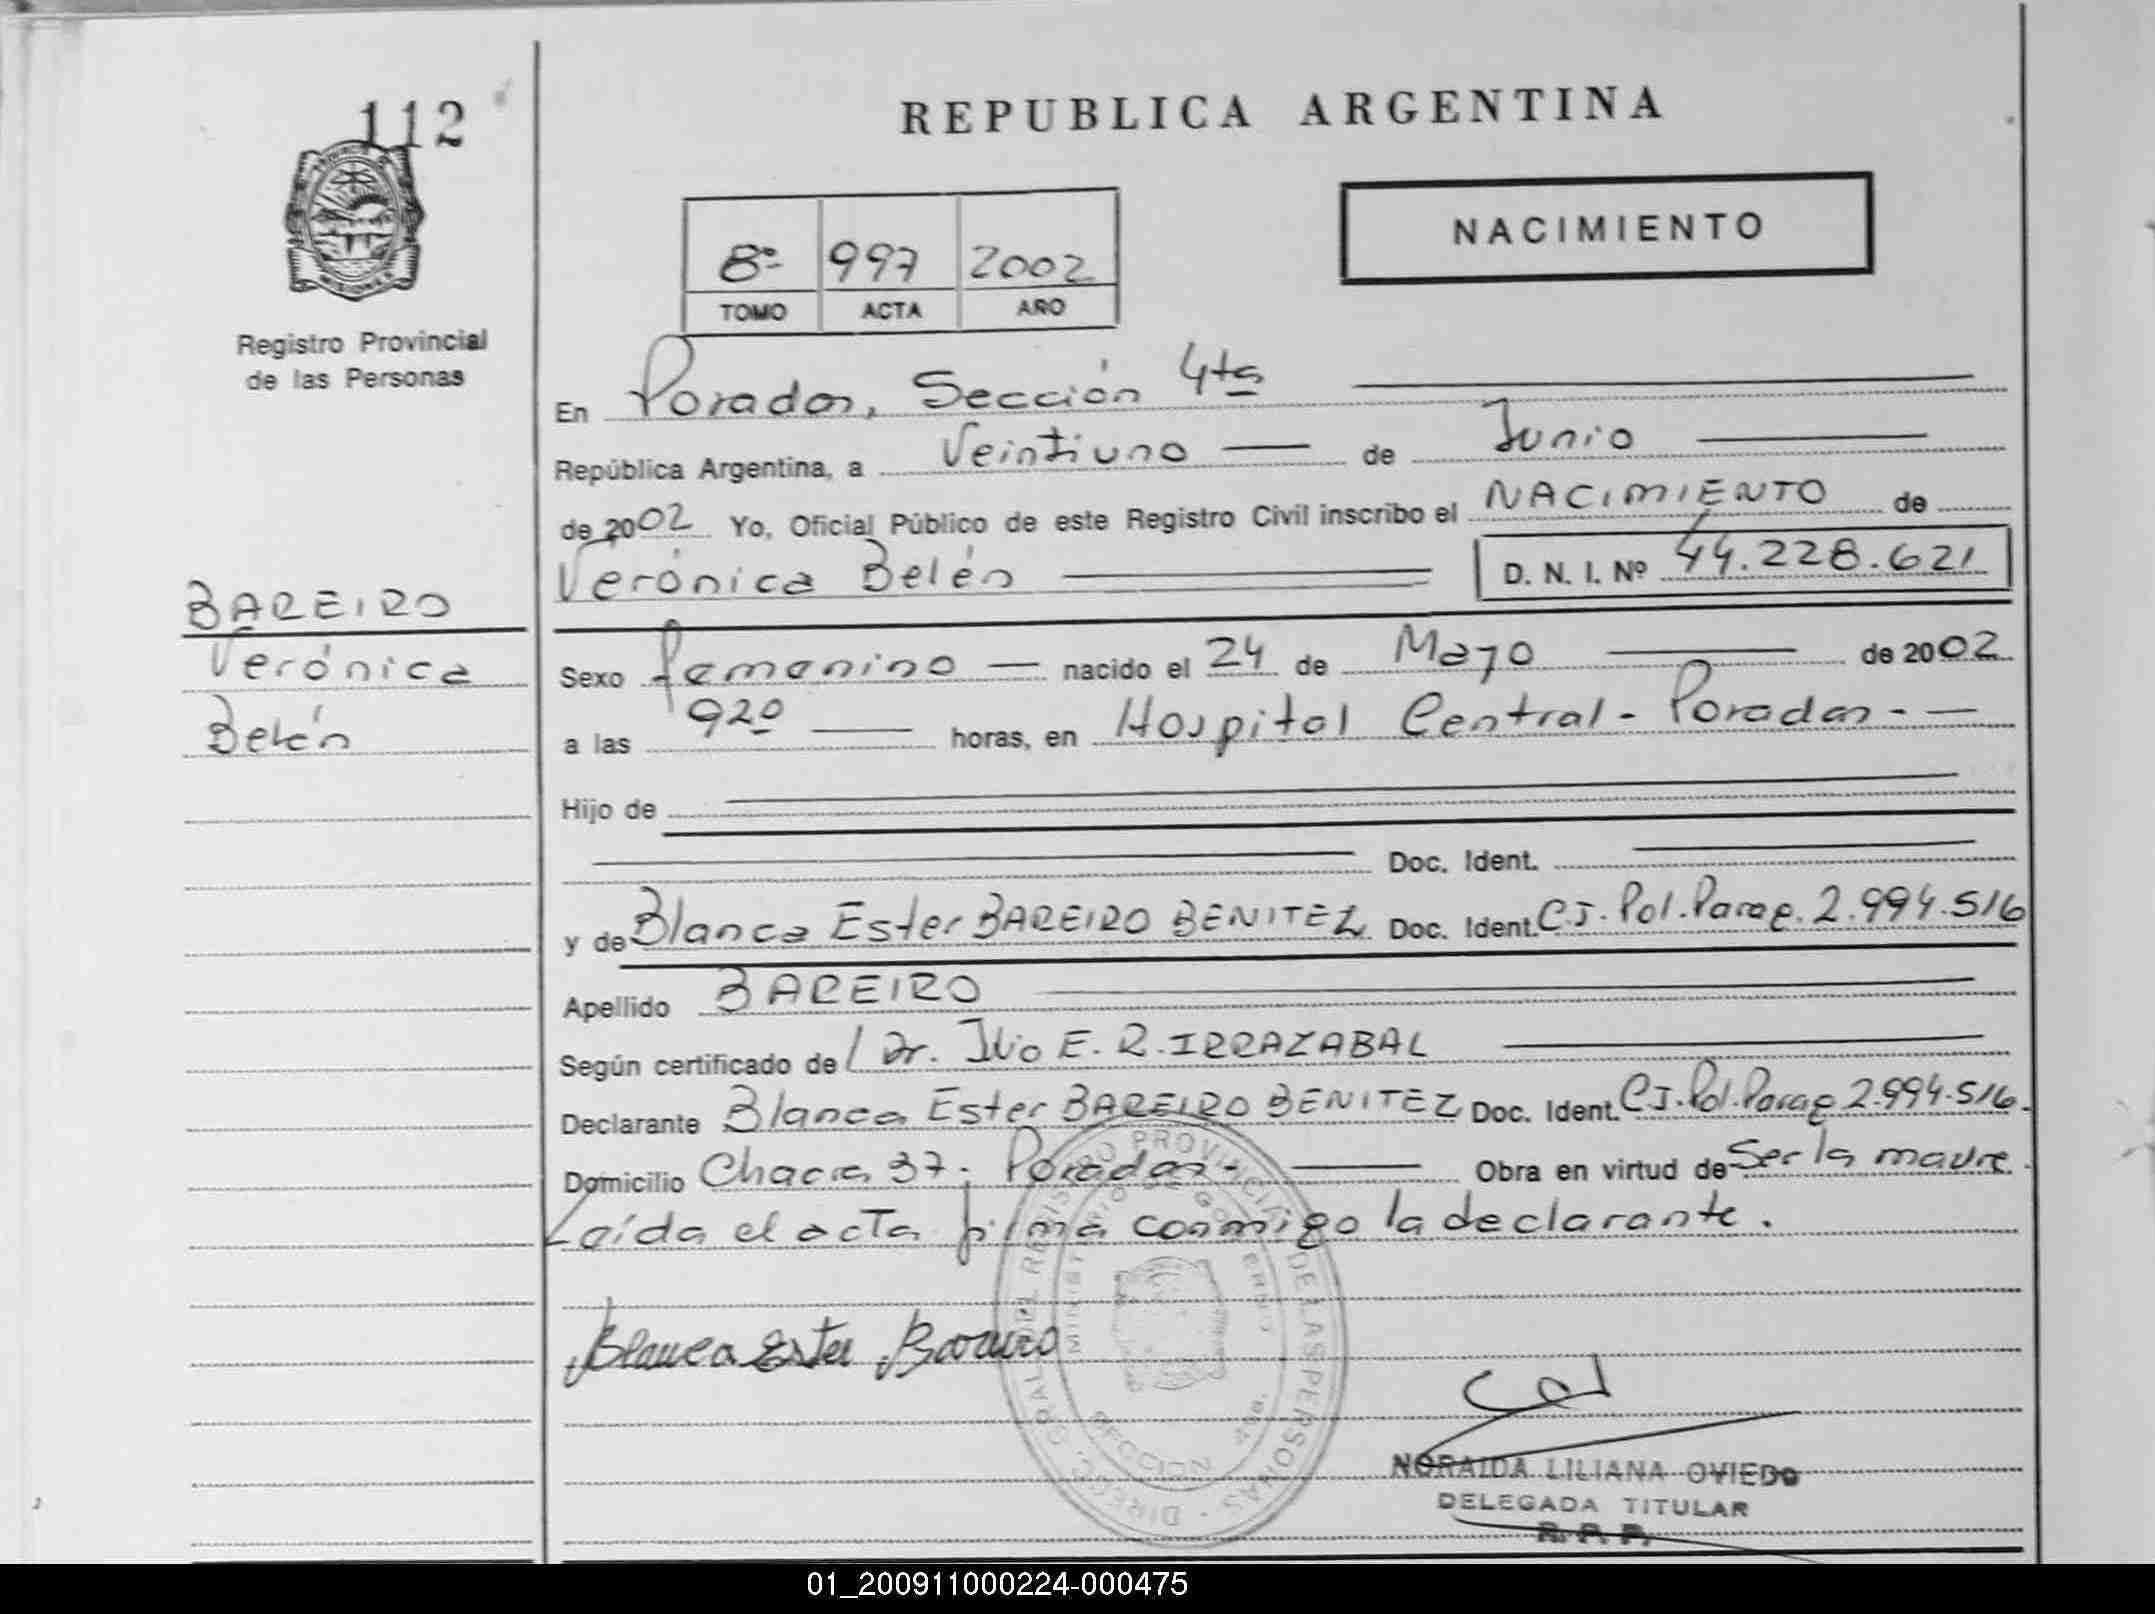 112
REPUBLICA ARGENTINA
NACIMIENTO
8º 997 2002
TOMO ACTA AÑO
Registro Provincial
de las Personas
En Posadas, Sección 4ta
República Argentina, a Veintiuno de Junio
de 2002 Yo, Oficial Público de este Registro Civil inscribo el NACIMIENTO de
Verónica Belén D. N. I. Nº 44.228.621
BAREIRO
Verónica
Belén
Sexo femenino nacido el 24 de Mayo de 2002
a las 920 horas, en Hospital Central - Posadas -
Hijo de
Doc. Ident.
y de Blanca Ester BAREIRO BENITEZ Doc. Ident. C.I. Pol. Parag. 2.994.516
Apellido BAREIRO
Según certificado de Dr. Julio E. R. IRRAZABAL
Declarante Blanca Ester BAREIRO BENITEZ Doc. Ident. C.I. Pol. Parag 2.994.516.
Domicilio Chacra 37. Posadas - Obra en virtud de Ser la madre.
Leída el acta firma conmigo la declarante.
Blanca Ester Bareiro
DIRECC. GRAL. DEL REGISTRO PROVINCIAL DE LAS PERSONAS
MINISTERIO DE GOBIERNO
SECCION
NORAIDA LILIANA OVIEDO
DELEGADA TITULAR
R. P. P.
01_200911000224-000475